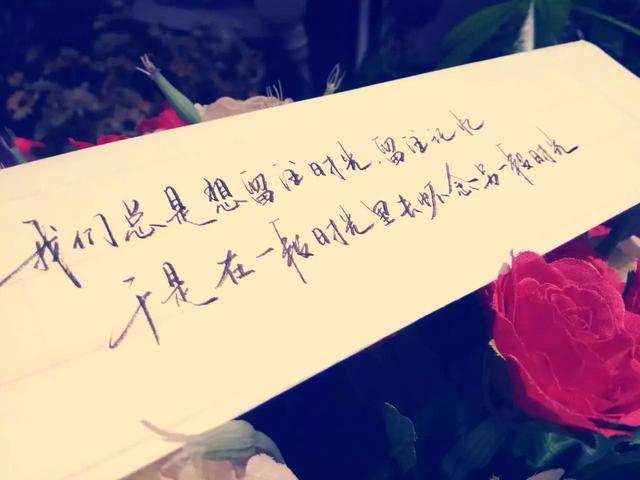 我们总是想留住时光,留住记忆
于是在一段时光里去怀念另一段时光